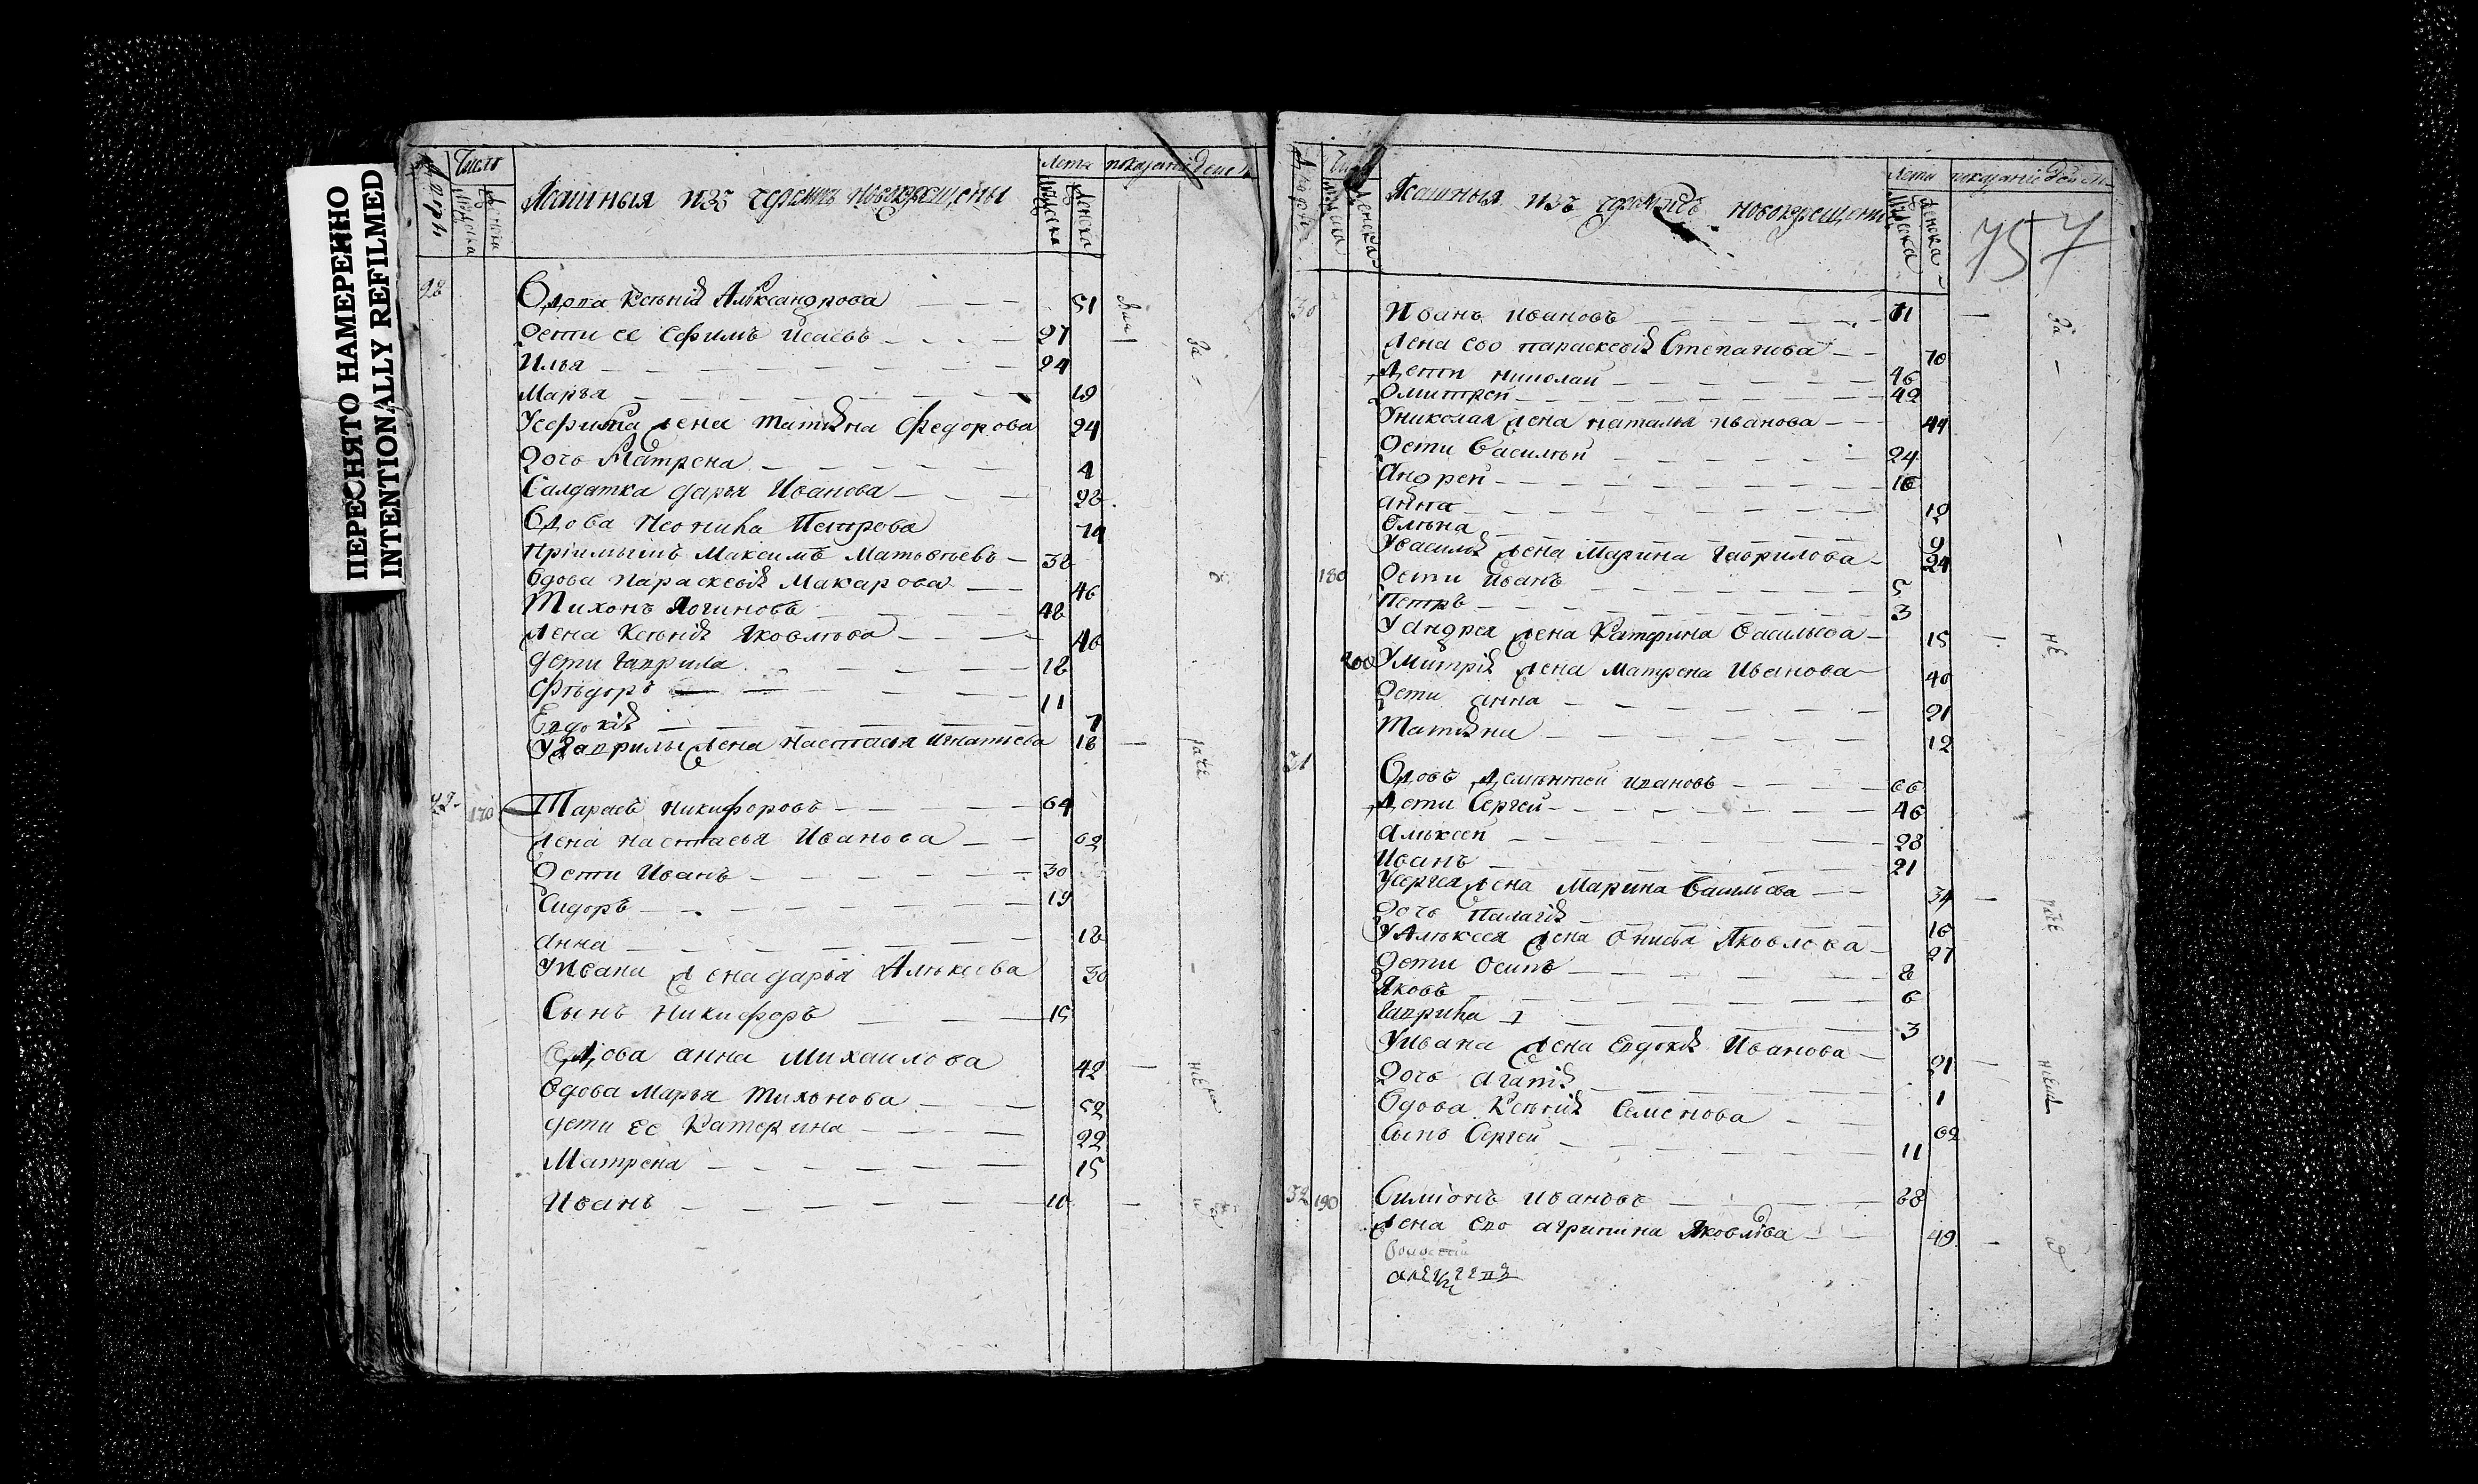 ПЕРЕСНЯТО НАМЕРЕННО
INTENTIONALLY REFILMED
Число
Лета
Ясашныя изъ черемисъ новокрещены
28
Вдова Ксѣнія Алѣксандрова 51
Дети ее Ефимъ Исаевъ 27
Илья 24
Марья 19
У Ефима жена Татіяна Федорова 24
Дочь Матрена 4
Салдатка Дарья Иванова 28
Вдова Неонила Петрова
Пріимышъ Максимъ Матвѣевъ 38
Вдова Параскевія Макарова 46
Тихонъ Логиновъ 48
Жена Ксѣнія Яковлѣва 46
Дети Гаврила 18
Ѳѣдоръ 11
Евдокія 7
У Гаврилы жена Настасья Игнатьева 18
29 170
Тарасъ Никифоровъ 64
Жена Настасья Иванова 62
Дети Иванъ 30
Сидоръ 19
Анна 18
У Ивана жена Дарья Алѣксеева 30
Сынъ Никифоръ 15
Вдова Анна Михаилова 42
Вдова Марья Тихонова 52
Дети ее Катерина 22
Матрена 15
Иванъ 10
Лета
Ясашныя изъ черемисъ новокрещены
757
30
Иванъ Ивановъ 71
Жена ево Параскевія Степанова 70
Дети Николай 46
Дмитрей 42
У Николая жена Наталья Иванова 44
Дети Василѣй 24
Андрей 16
Анна 12
Елѣна 9
У Василья жена Марина Гаврилова 24
180 Дети Иванъ 5
Петръ 3
У Андрея жена Катерина Васильева 15
200 У Митрія жена Матрена Иванова 40
Дети Анна 21
Татіяна 12
31
Вдовъ Дементей Ивановъ 66
Дети Сергей 46
Алѣксей 28
Иванъ 21
У Сергея жена Марина Васильева 34
Дочь Палагія 16
У Алѣксея жена Онисья Яковлева 27
Дети Осипъ 8
Яковъ 6
Гаврила 3
У Ивана жена Евдокія Иванова 21
Дочь Агапія 1
Вдова Ксѣнія Семенова 62
Сынъ Сергей 11
32 190 Симіонъ Ивановъ 38
Жена ево Агрипина Яковлѣва 49